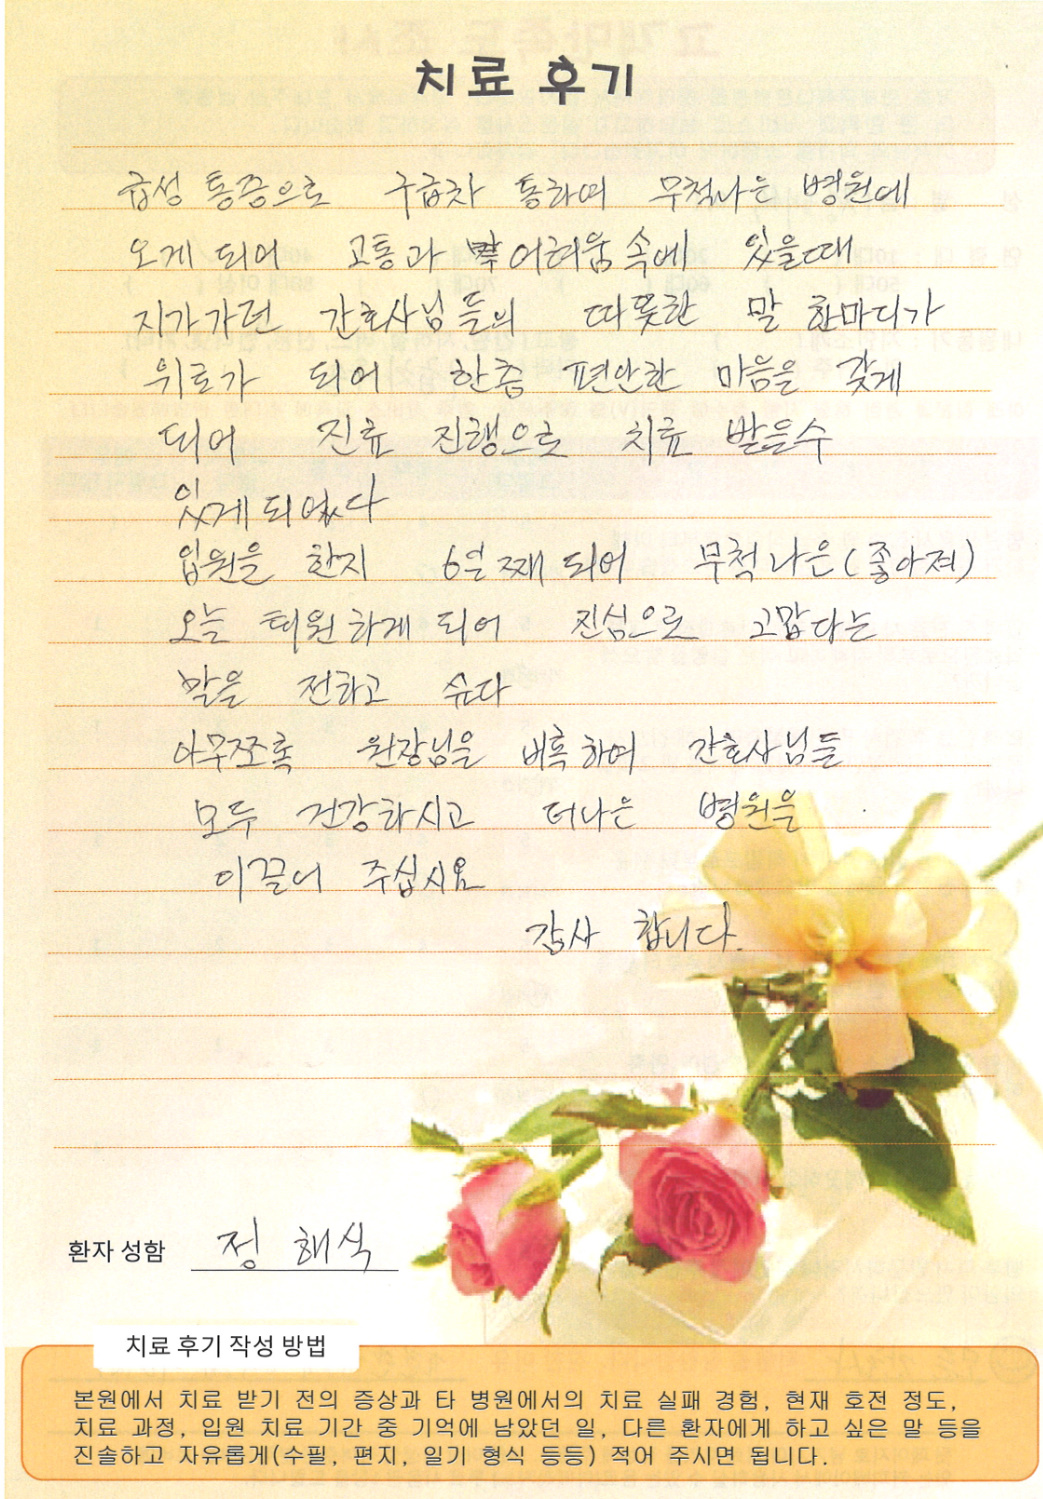 치료 후기
급성 통증으로 구급차 통하며 무척나은 병원에
오게 되어 고통과 어려움 속에 있을때
지가가던 간호사님들의 따뜻한 말 한마디가
위로가 되어 한층 편안한 마음을 갖게
되어 진료 진행으로 치료 받을수
있게 되었다
입원을 한지 6일째 되어 무척 나은(좋아져)
오늘 퇴원하게 되어 진심으로 고맙다는
말을 전하고 싶다
아무쪼록 원장님을 비록하여 간호사님들
모두 건강하시고 더나은 병원을
이끌어 주십시요
감사 합니다.
환자 성함 정 해식
치료 후기 작성 방법
본원에서 치료 받기 전의 증상과 타 병원에서의 치료 실패 경험, 현재 호전 정도,
치료 과정, 입원 치료 기간 중 기억에 남았던 일, 다른 환자에게 하고 싶은 말 등을
진솔하고 자유롭게(수필, 편지, 일기 형식 등등) 적어 주시면 됩니다.